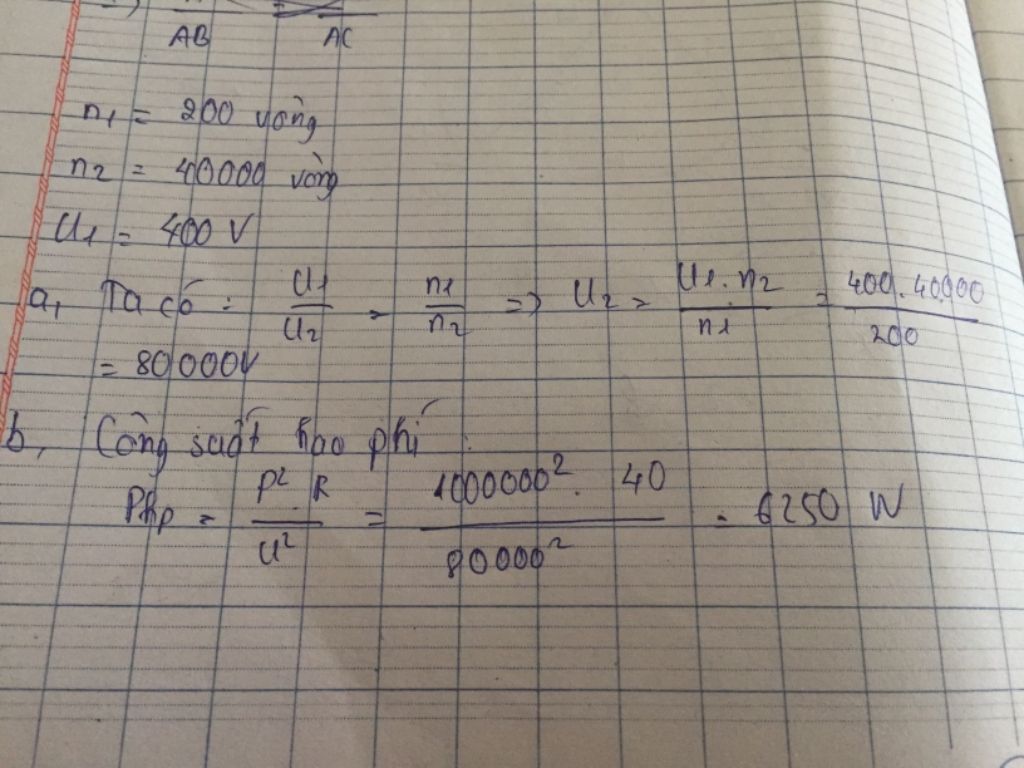 AB AC
n1 = 200 vòng
n2 = 40000 vòng
U1 = 400 V
a, Ta có : U1/U2 = n1/n2 => U2 = U1.n2/n1 = 400.40000/200
= 80000V
b, Công suất hao phí :
Php = P² R/U² = 1000000². 40/80000² = 6250 W